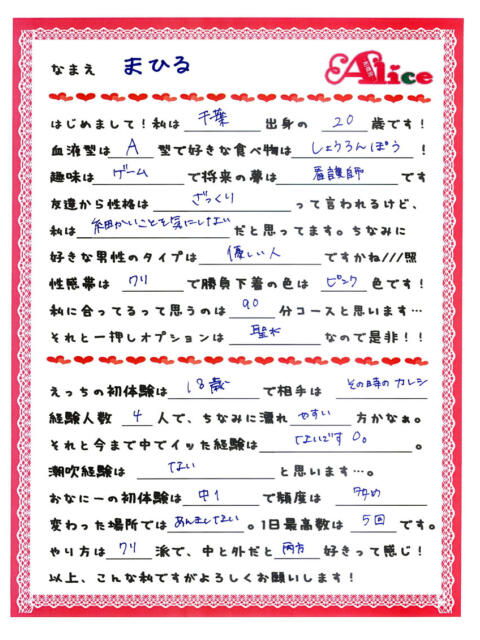 なまえ まひる
お姫様 Alice
はじめまして！私は 千葉 出身の 20 歳です！
血液型は A 型で好きな食べ物は しょうろんぽう ！
趣味は ゲーム で将来の夢は 看護師 です
友達から性格は ざっくり って言われるけど、
私は 細かいことを気にしない だと思ってます。ちなみに
好きな男性のタイプは 優しい人 ですかね///照
性感帯は クリ で勝負下着の色は ピンク 色です！
私に合ってるって思うのは 90 分コースと思います…
それと一押しオプションは 聖水 なので是非！！
えっちの初体験は 18歳 で相手は その時のカレシ
経験人数 4 人で、ちなみに濡れ やすい 方かなぁ。
それと今まで中でイッた経験は ないです 。
潮吹経験は ない と思います…。
変わった場所では あんましない 。1日最高数は 5回 です。
やり方は クリ 派で、中と外だと 両方 好きって感じ！
以上、こんな私ですがよろしくお願いします！